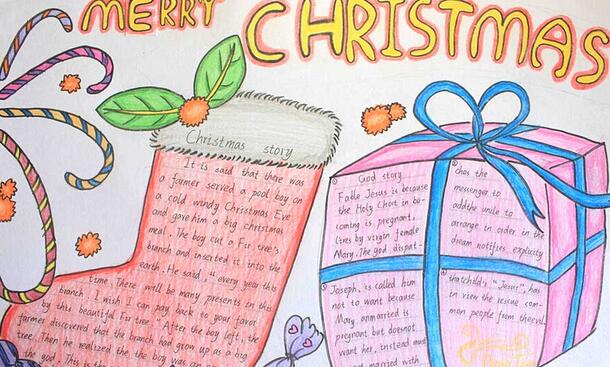 MERRY CHRISTMAS
Christmas story
It is said that there was
a farmer served a pool boy on
a cold windy Christmas Eve
and gave him a big christmas
meal. The boy cut a Fir tree's
branch and inserted it into the
earth. He said "every year this
time. There will be many presents in this
branch. I wish I can pay back to your favor
by this beautiful Fir tree." After the boy left, the
farmer discovered that the branch had grown up as a big
tree. Then he realized the the boy was an
the god. This is the
① God story
Fable Jesus is because
the Holy Ghost in bo-
coming is pregnant,
lires by virgin female
Mary. The god dispat-
② chos the
messenger to
addthe uncle to
arrange in order in the
dream notifies explicity
③ Joseph, is called him
not to want because
Mary anmarried is
pregnant but doesnot
want her, instead must
get married with
④ thatchild's "Jesus", has
in view the rescue com-
mon people from theevil